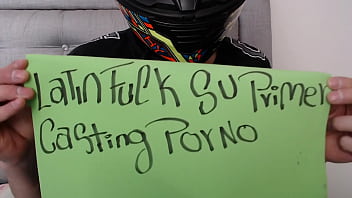 Latin Fuck Su Primer
Casting Porno